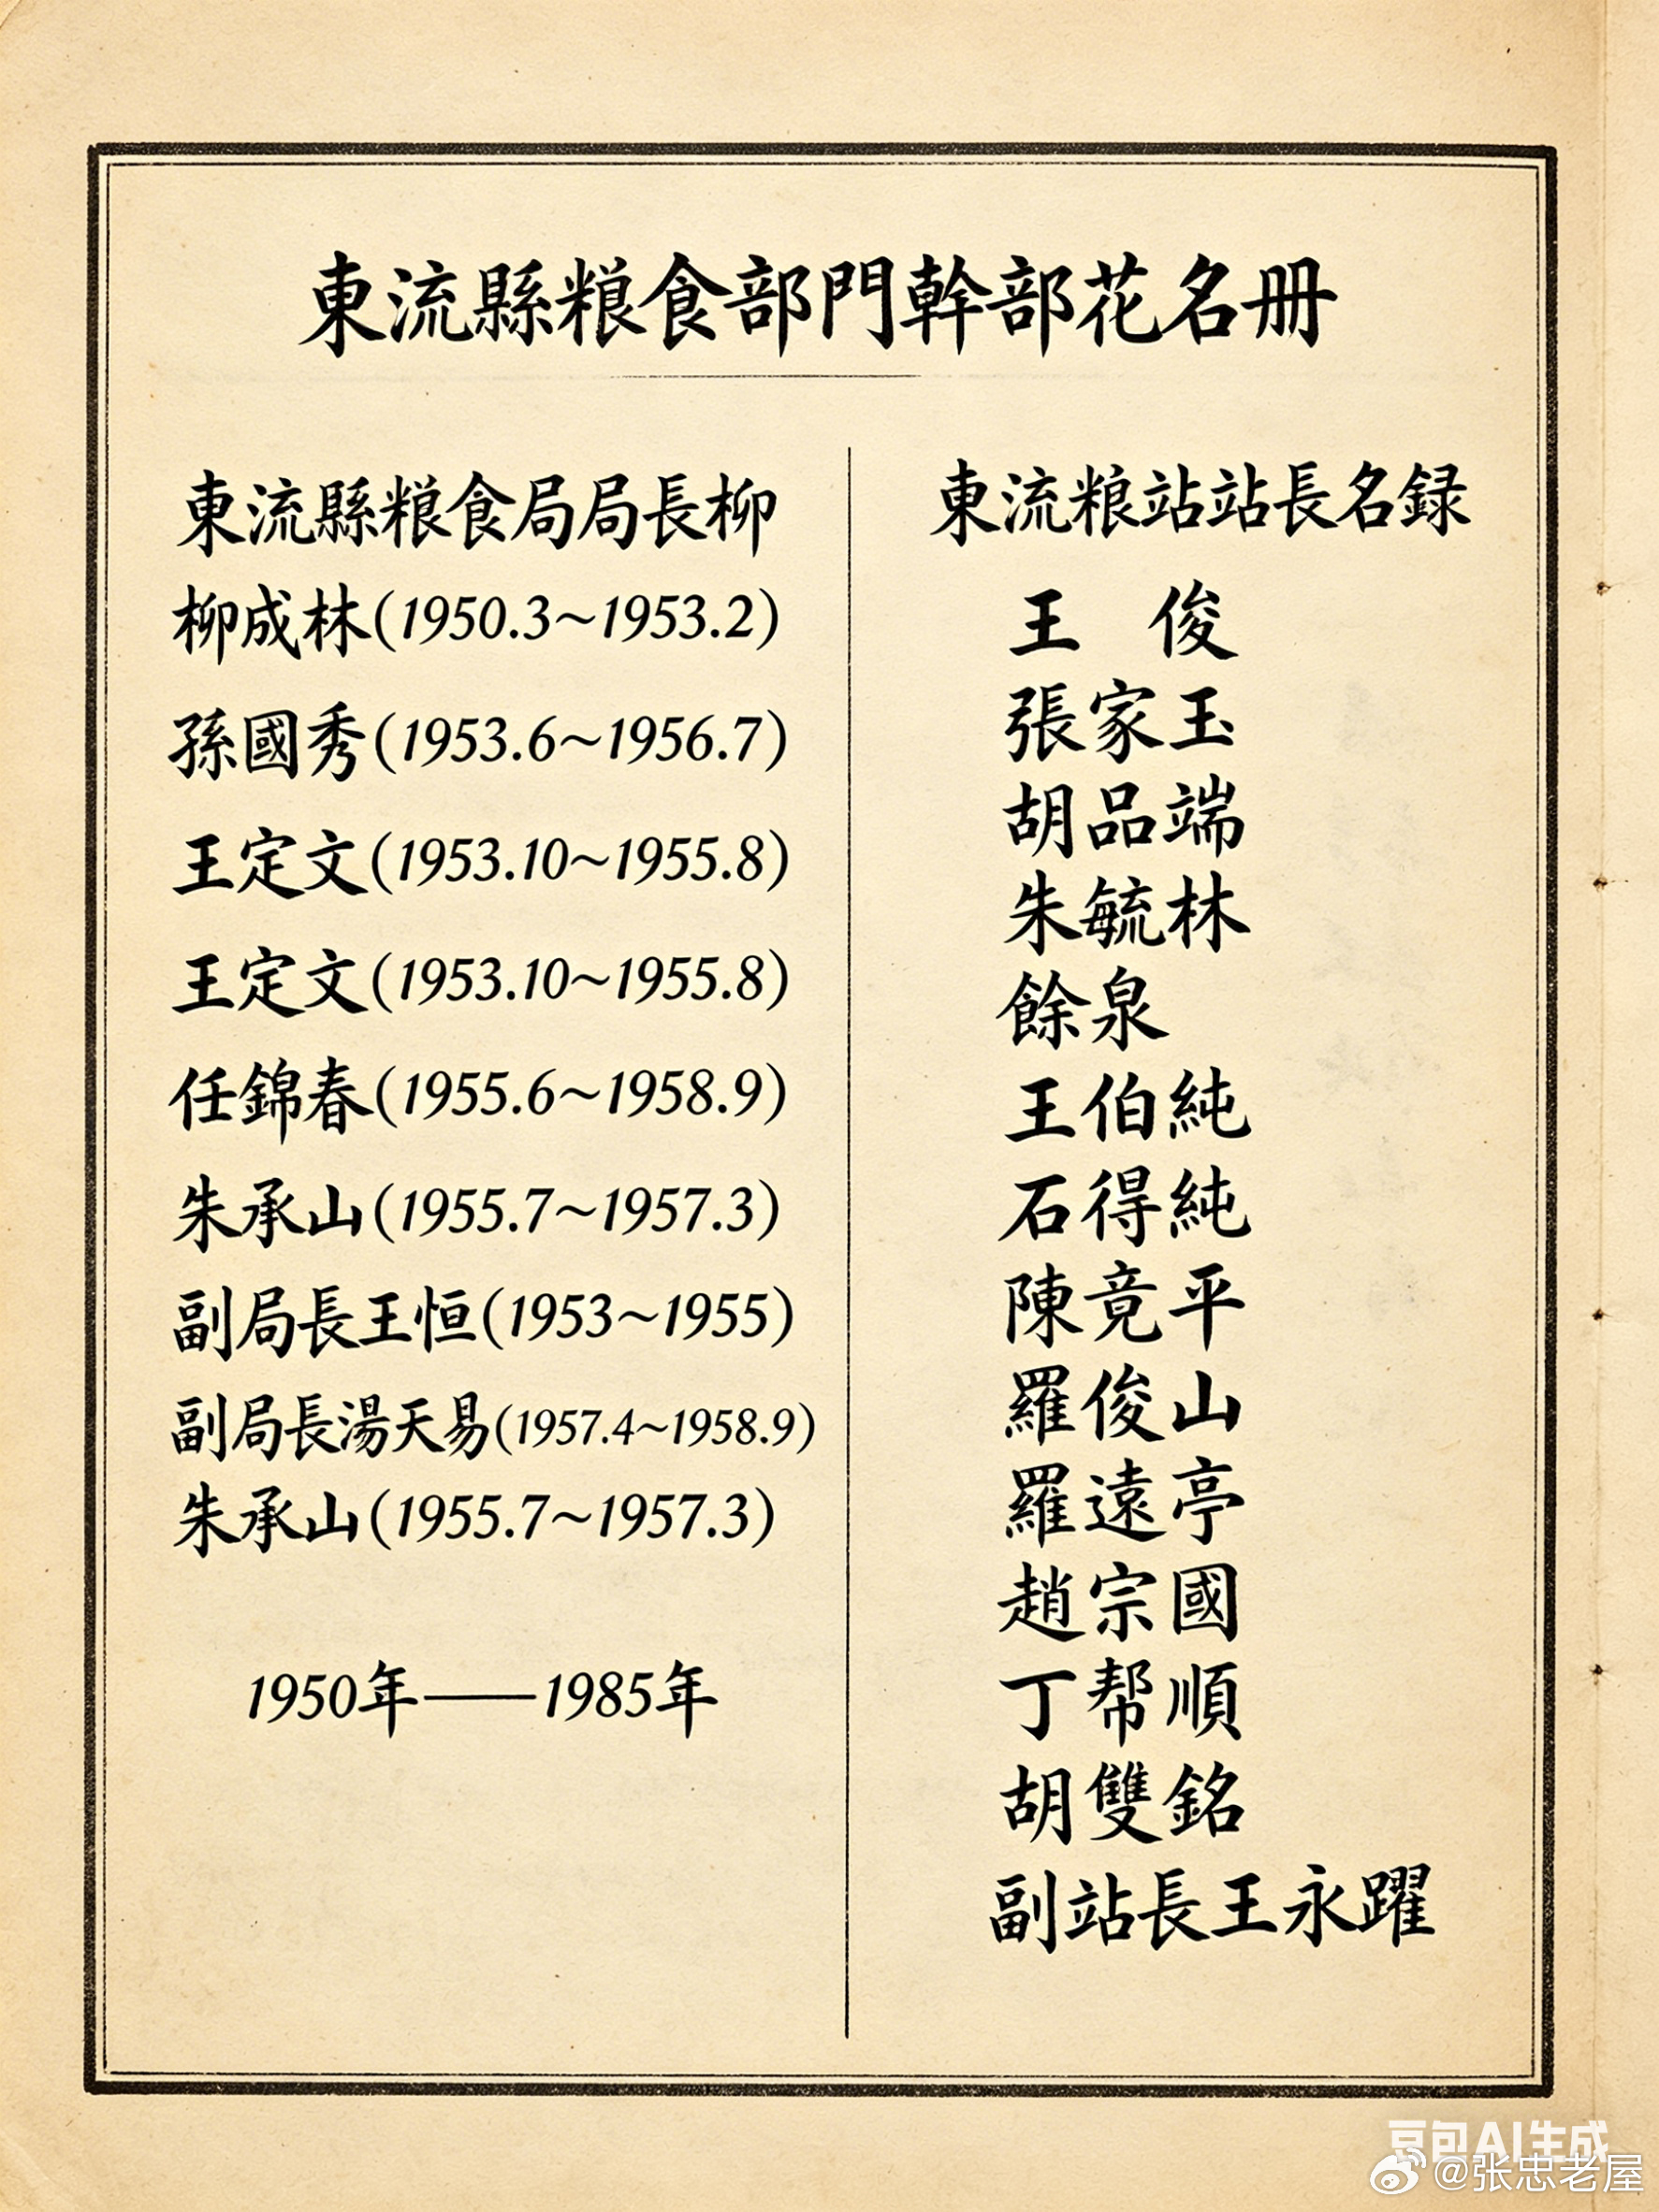 東流縣粮食部門幹部花名册
東流縣粮食局局長柳
柳成林(1950.3~1953.2)
孫國秀(1953.6~1956.7)
王定文(1953.10~1955.8)
王定文(1953.10~1955.8)
任錦春(1955.6~1958.9)
朱承山(1955.7~1957.3)
副局長王恒(1953~1955)
副局長湯天易(1957.4~1958.9)
朱承山(1955.7~1957.3)
1950年——1985年
東流粮站站長名録
王 俊
張家玉
胡品端
朱毓林
餘泉
王伯純
石得純
陳竟平
羅俊山
羅遠亭
趙宗國
丁帮順
胡雙銘
副站長王永躍
豆包AI生成
@张忠老屋